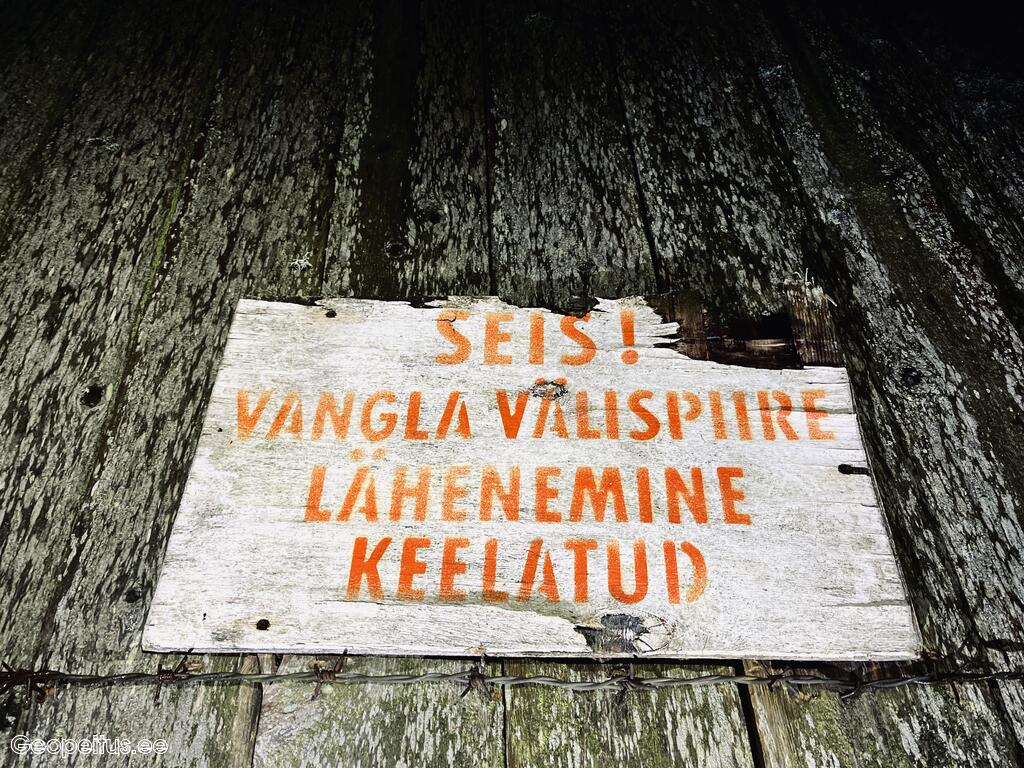 SEIS!
VANGLA VÄLISPIIRE
LÄHENEMINE
KEELATUD
Geopeitus.ee